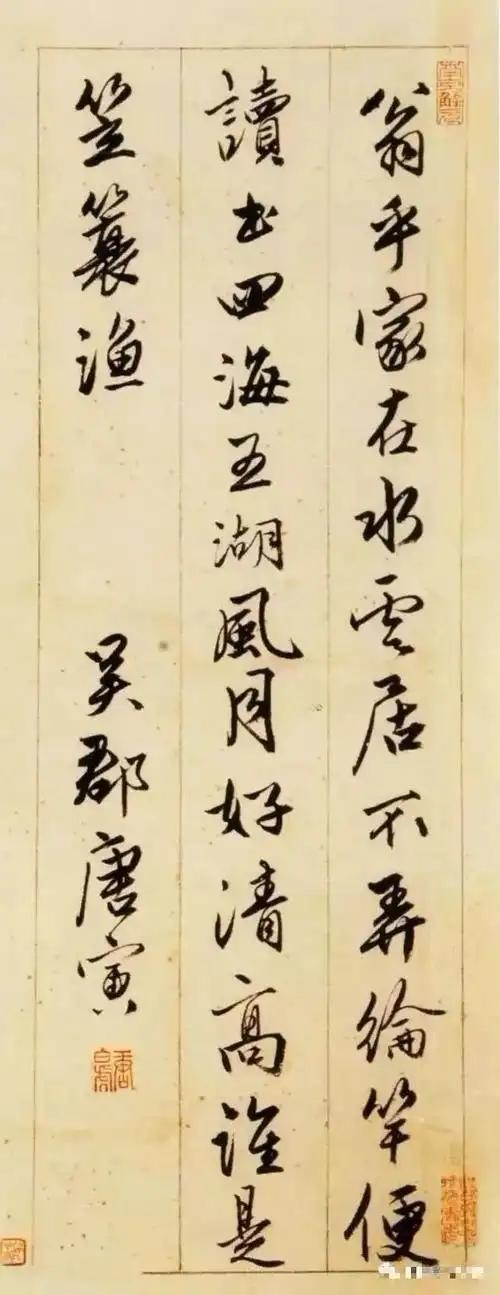 翁乎家在水雲居不弄綸竿便
讀书四海五湖風月好清高誰是
笠蓑漁
吴郡唐寅